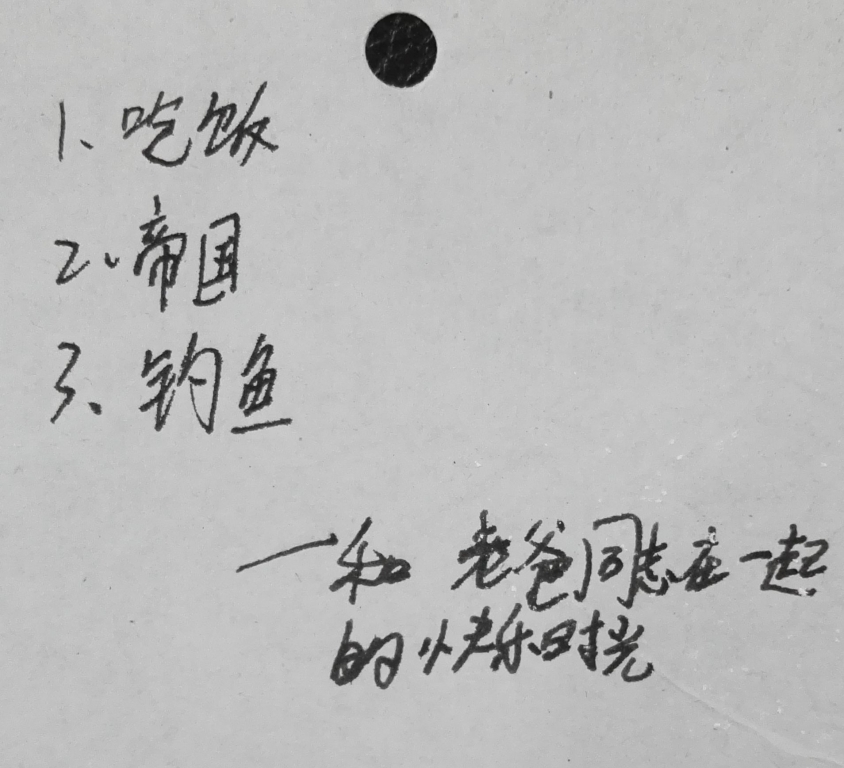 1、吃饭
2、帝国
3、钓鱼
一和 老爸同志在一起
的快乐时光